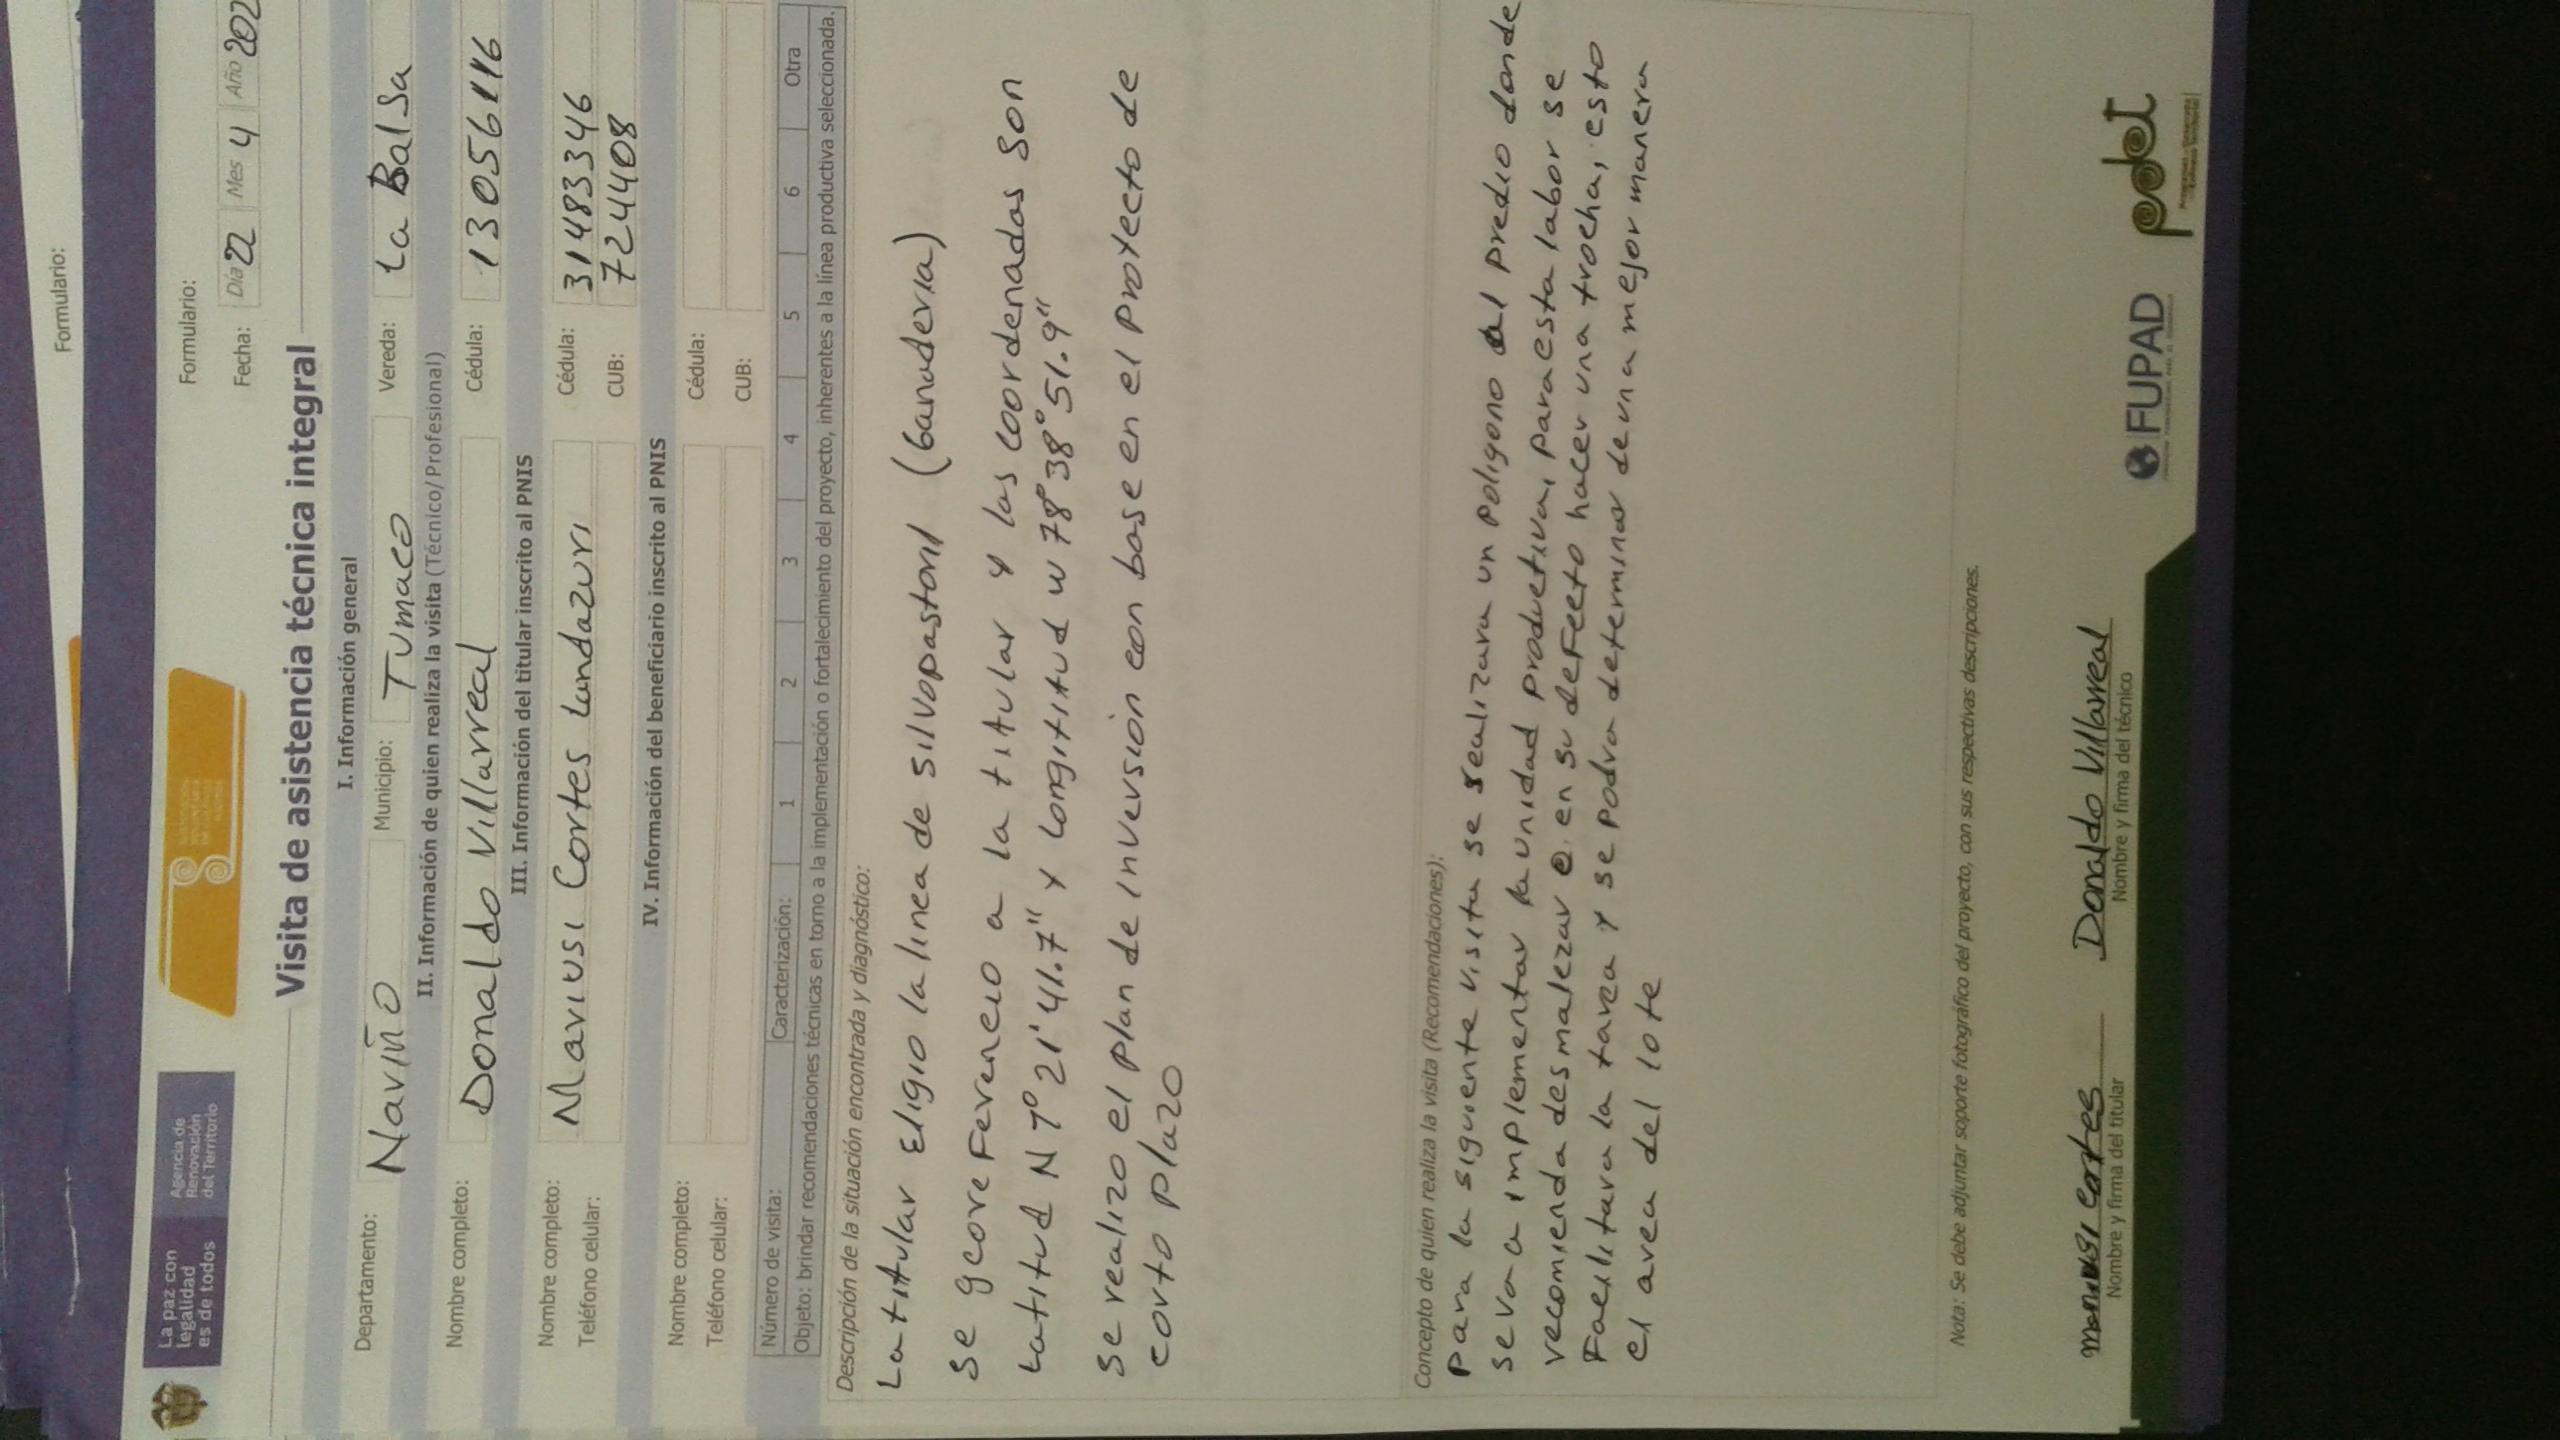 Formulario:
La paz con
legalidad
es de todos
Agencia de
Renovación
del Territorio
Formulario:
Fecha: Día 22 Mes 4 Año 202
Visita de asistencia técnica integral
I. Información general
Departamento: Nariño Municipio: Tumaco Vereda: La Balsa
II. Información de quien realiza la visita (Técnico/ Profesional)
Nombre completo: Donaldo Villarreal Cédula: 13056116
III. Información del titular inscrito al PNIS
Nombre completo: Mariusi Cortes Landazuri Cédula: 31483346
Teléfono celular: CUB: 724408
IV. Información del beneficiario inscrito al PNIS
Nombre completo: Cédula:
Teléfono celular: CUB:
Número de visita: Caracterización: 1 2 3 4 5 6 Otra
Objeto: brindar recomendaciones técnicas en torno a la implementación o fortalecimiento del proyecto, inherentes a la línea productiva seleccionada.
Descripción de la situación encontrada y diagnóstico:
La titular Eligio la linea de silvopastoril (Ganaderia)
se georeferencio a la titular y las coordenadas son
Latitud N 1° 21' 41.7" y Longititud w 78° 38° 51.9"
se realizo el plan de inversion con base en el Proyecto de
corto plazo
Concepto de quien realiza la visita (Recomendaciones):
Para la siguiente visita se realizara un poligono al predio donde
se va a implementar la unidad productiva, para esta labor se
recomienda desmalezar o en su defecto hacer una trocha, esto
Facilitara la tarea y se podra determinar de una mejor manera
el area del lote
Nota: Se debe adjuntar soporte fotográfico del proyecto, con sus respectivas descripciones.
mariusi cortes Donaldo Villarreal
Nombre y firma del titular Nombre y firma del técnico
FUPAD
pdet